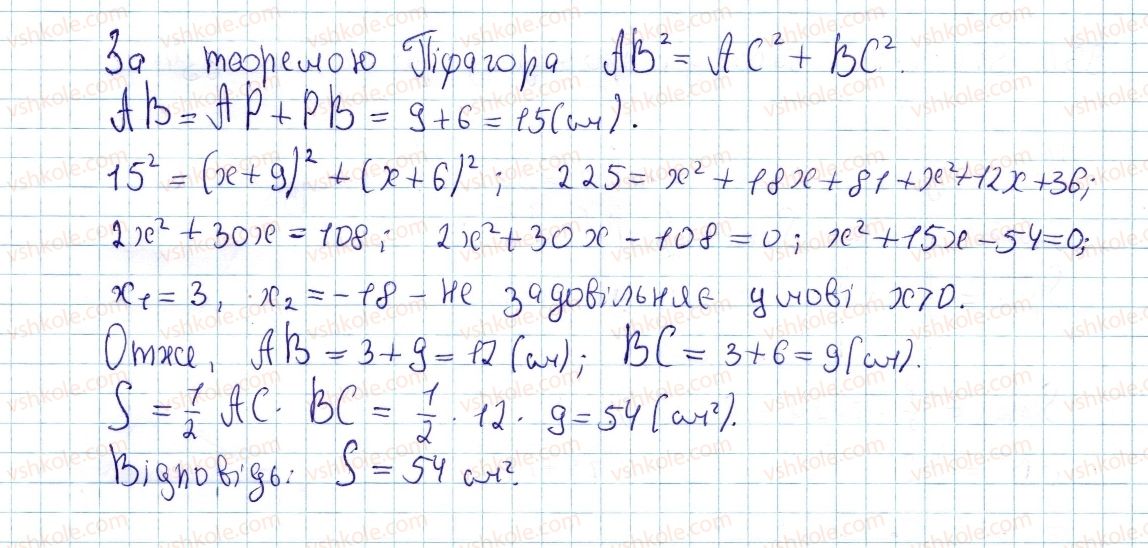 За теоремою Піфагора AB² = AC² + BC².
AB = AP + PB = 9 + 6 = 15 (см).
15² = (x + 9)² + (x + 6)²; 225 = x² + 18x + 81 + x² + 12x + 36;
2x² + 30x = 108; 2x² + 30x - 108 = 0; x² + 15x - 54 = 0;
x₁ = 3, x₂ = -18 - не задовільняє умові x > 0.
Отже, AB = 3 + 9 = 12 (см); BC = 3 + 6 = 9 (см).
S = 1/2 AC · BC = 1/2 · 12 · 9 = 54 (см²).
Відповідь: S = 54 см².